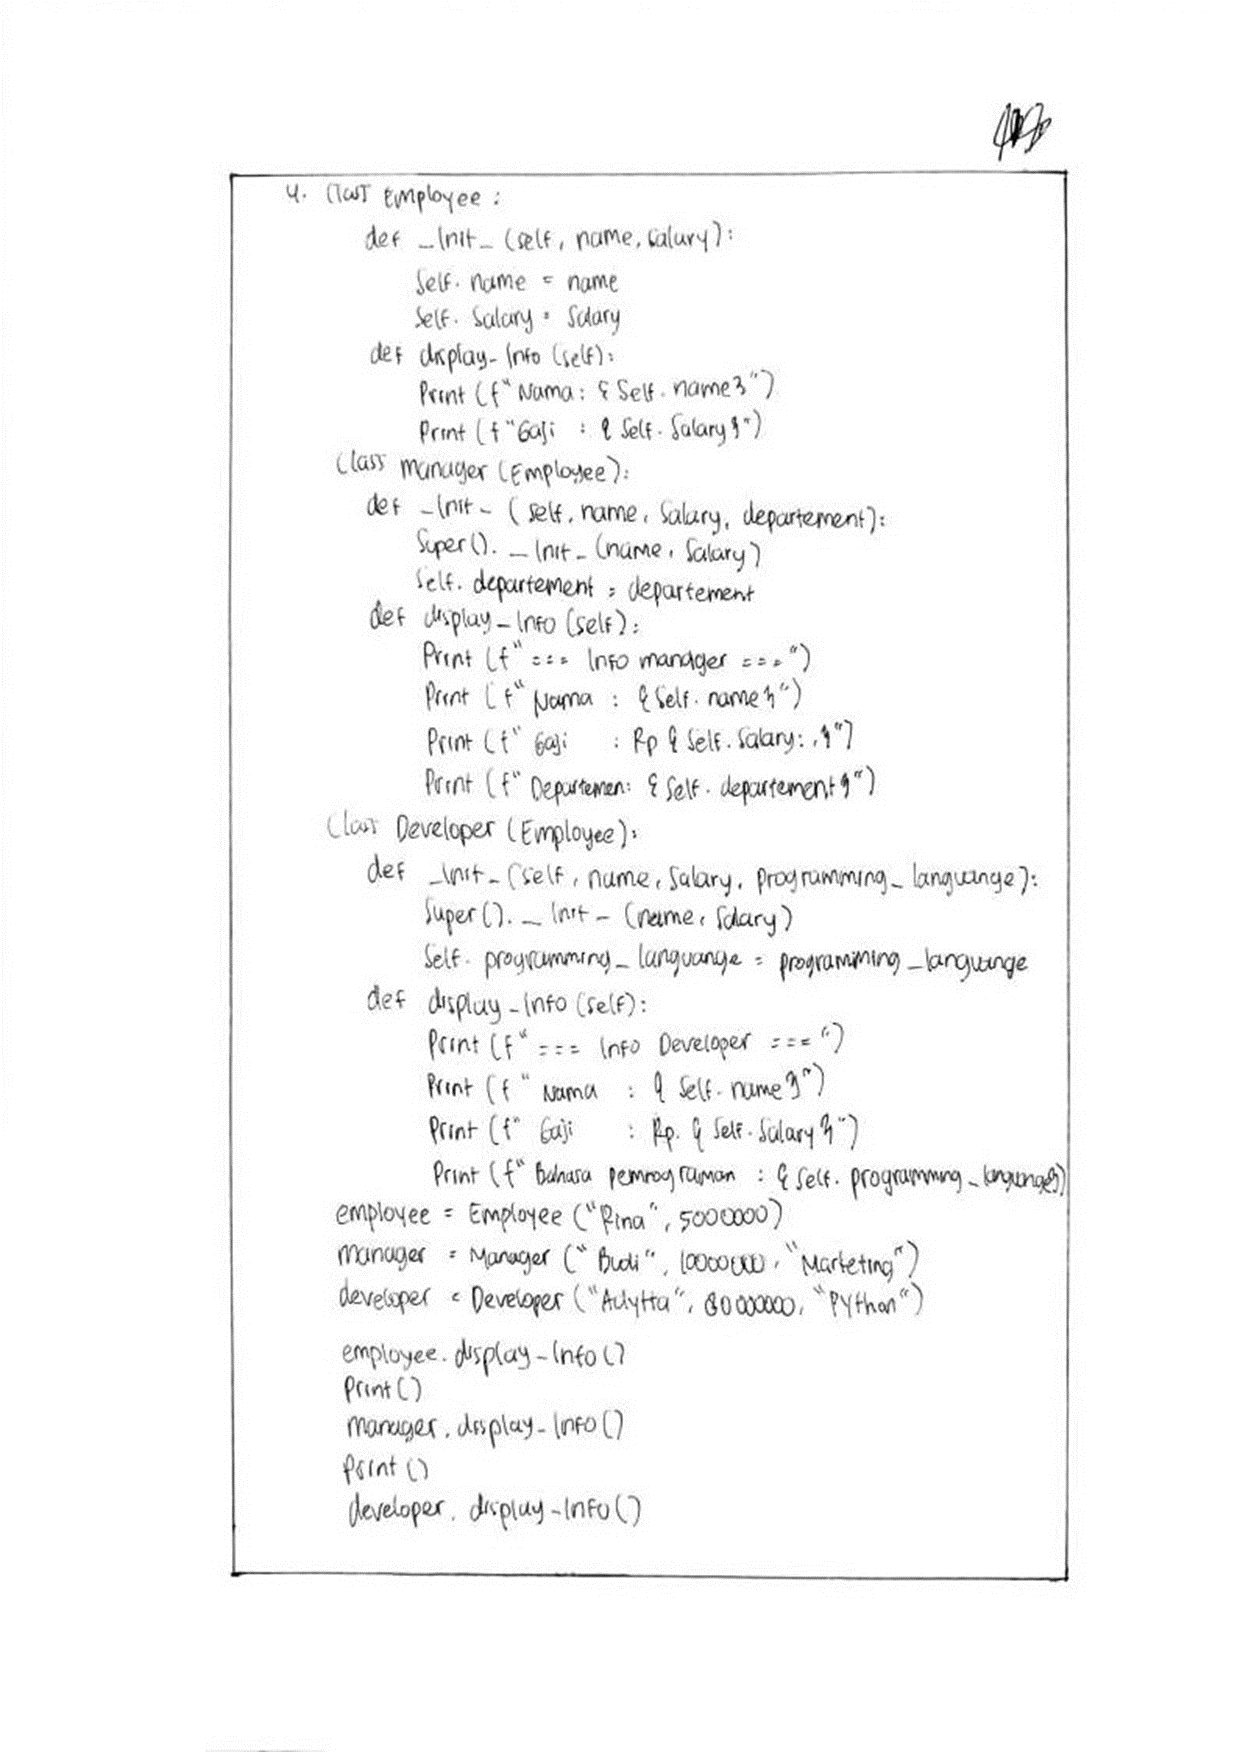 4. Class Employee :
def _Init_ (self, name, salary):
Self. name = name
Self. Salary = Salary
def display_Info (self):
Print (f" Nama: { Self. name}")
Print (f "Gaji : { Self. Salary}")
Class manager (Employee):
def _Init_ ( self, name, Salary, departement):
Super(). _Init_ (name, Salary)
Self. departement = departement
def display_Info (self):
Print (f" === Info manager ===")
Print (f" Nama : {Self. name}")
Print (f" Gaji : Rp { Self. Salary: ,}")
Print (f" Departemen: { Self. departement}")
Class Developer (Employee):
def _Init_ (self, name, Salary, programming_languange):
Super(). _Init_ (name, Salary)
Self. programming_languange = programming_languange
def display_Info (self):
Print (f" === Info Developer ===")
Print (f " Nama : { Self. name}")
Print (f" Gaji : Rp. { Self. Salary}")
Print (f" Bahasa pemrograman : { Self. programming_languange})
employee = Employee ("Rina", 5000000)
manager = Manager (" Budi", 10000000, "Marketing")
developer = Developer ("Adytta", 80000000, "PYthon")
employee. display_Info ()
Print ()
manager. display_Info ()
Print ()
developer. display_Info ()